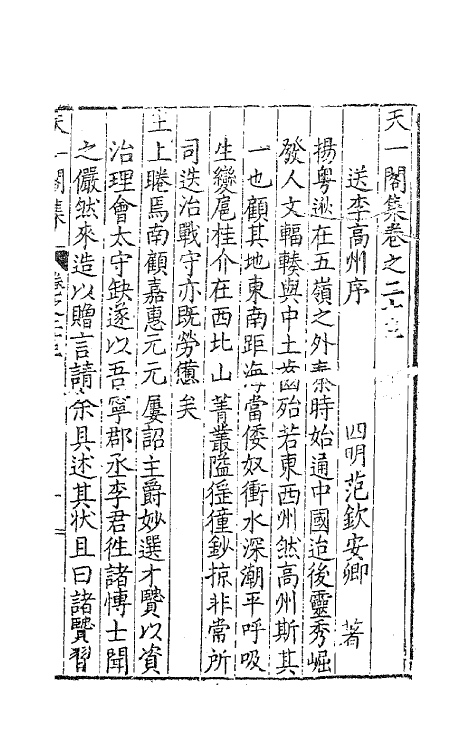 天一閣集卷之二十三
四明范欽安卿 著
送李高州序
揚粵逖在五嶺之外秦時始通中國迨後靈秀崛
發人文輻輳與中土齒殆若東西州然高州斯其
一也顧其地東南距海當倭奴衝水深潮平呼吸
生變扈桂介在西北山菁叢隘徭獞鈔掠非常所
司迭治戰守亦既勞憊矣
主上睠焉南顧嘉惠元元屢詔主爵妙選才賢以資
治理會太守缺遂以吾寧郡丞李君徃諸愽士聞
之儼然來造以贈言請余具述其状且曰諸賢習
天一閣集